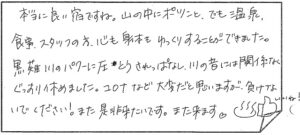 本当に良い宿ですね。山の中にポツンと、でも温泉、
食事、スタッフの方、心も身体もゆっくりすることができました。
黒薙川のパワーに圧とうされっぱなし、川の音には関係なく
ぐっすり休めました。コロナなど大変だと思いますが、負けな
いでください！また是非来たいです。また来ます。